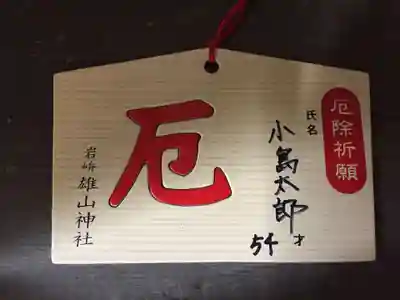 厄除祈願
氏名
小島太郎
54才
厄
岩峅
雄山神社